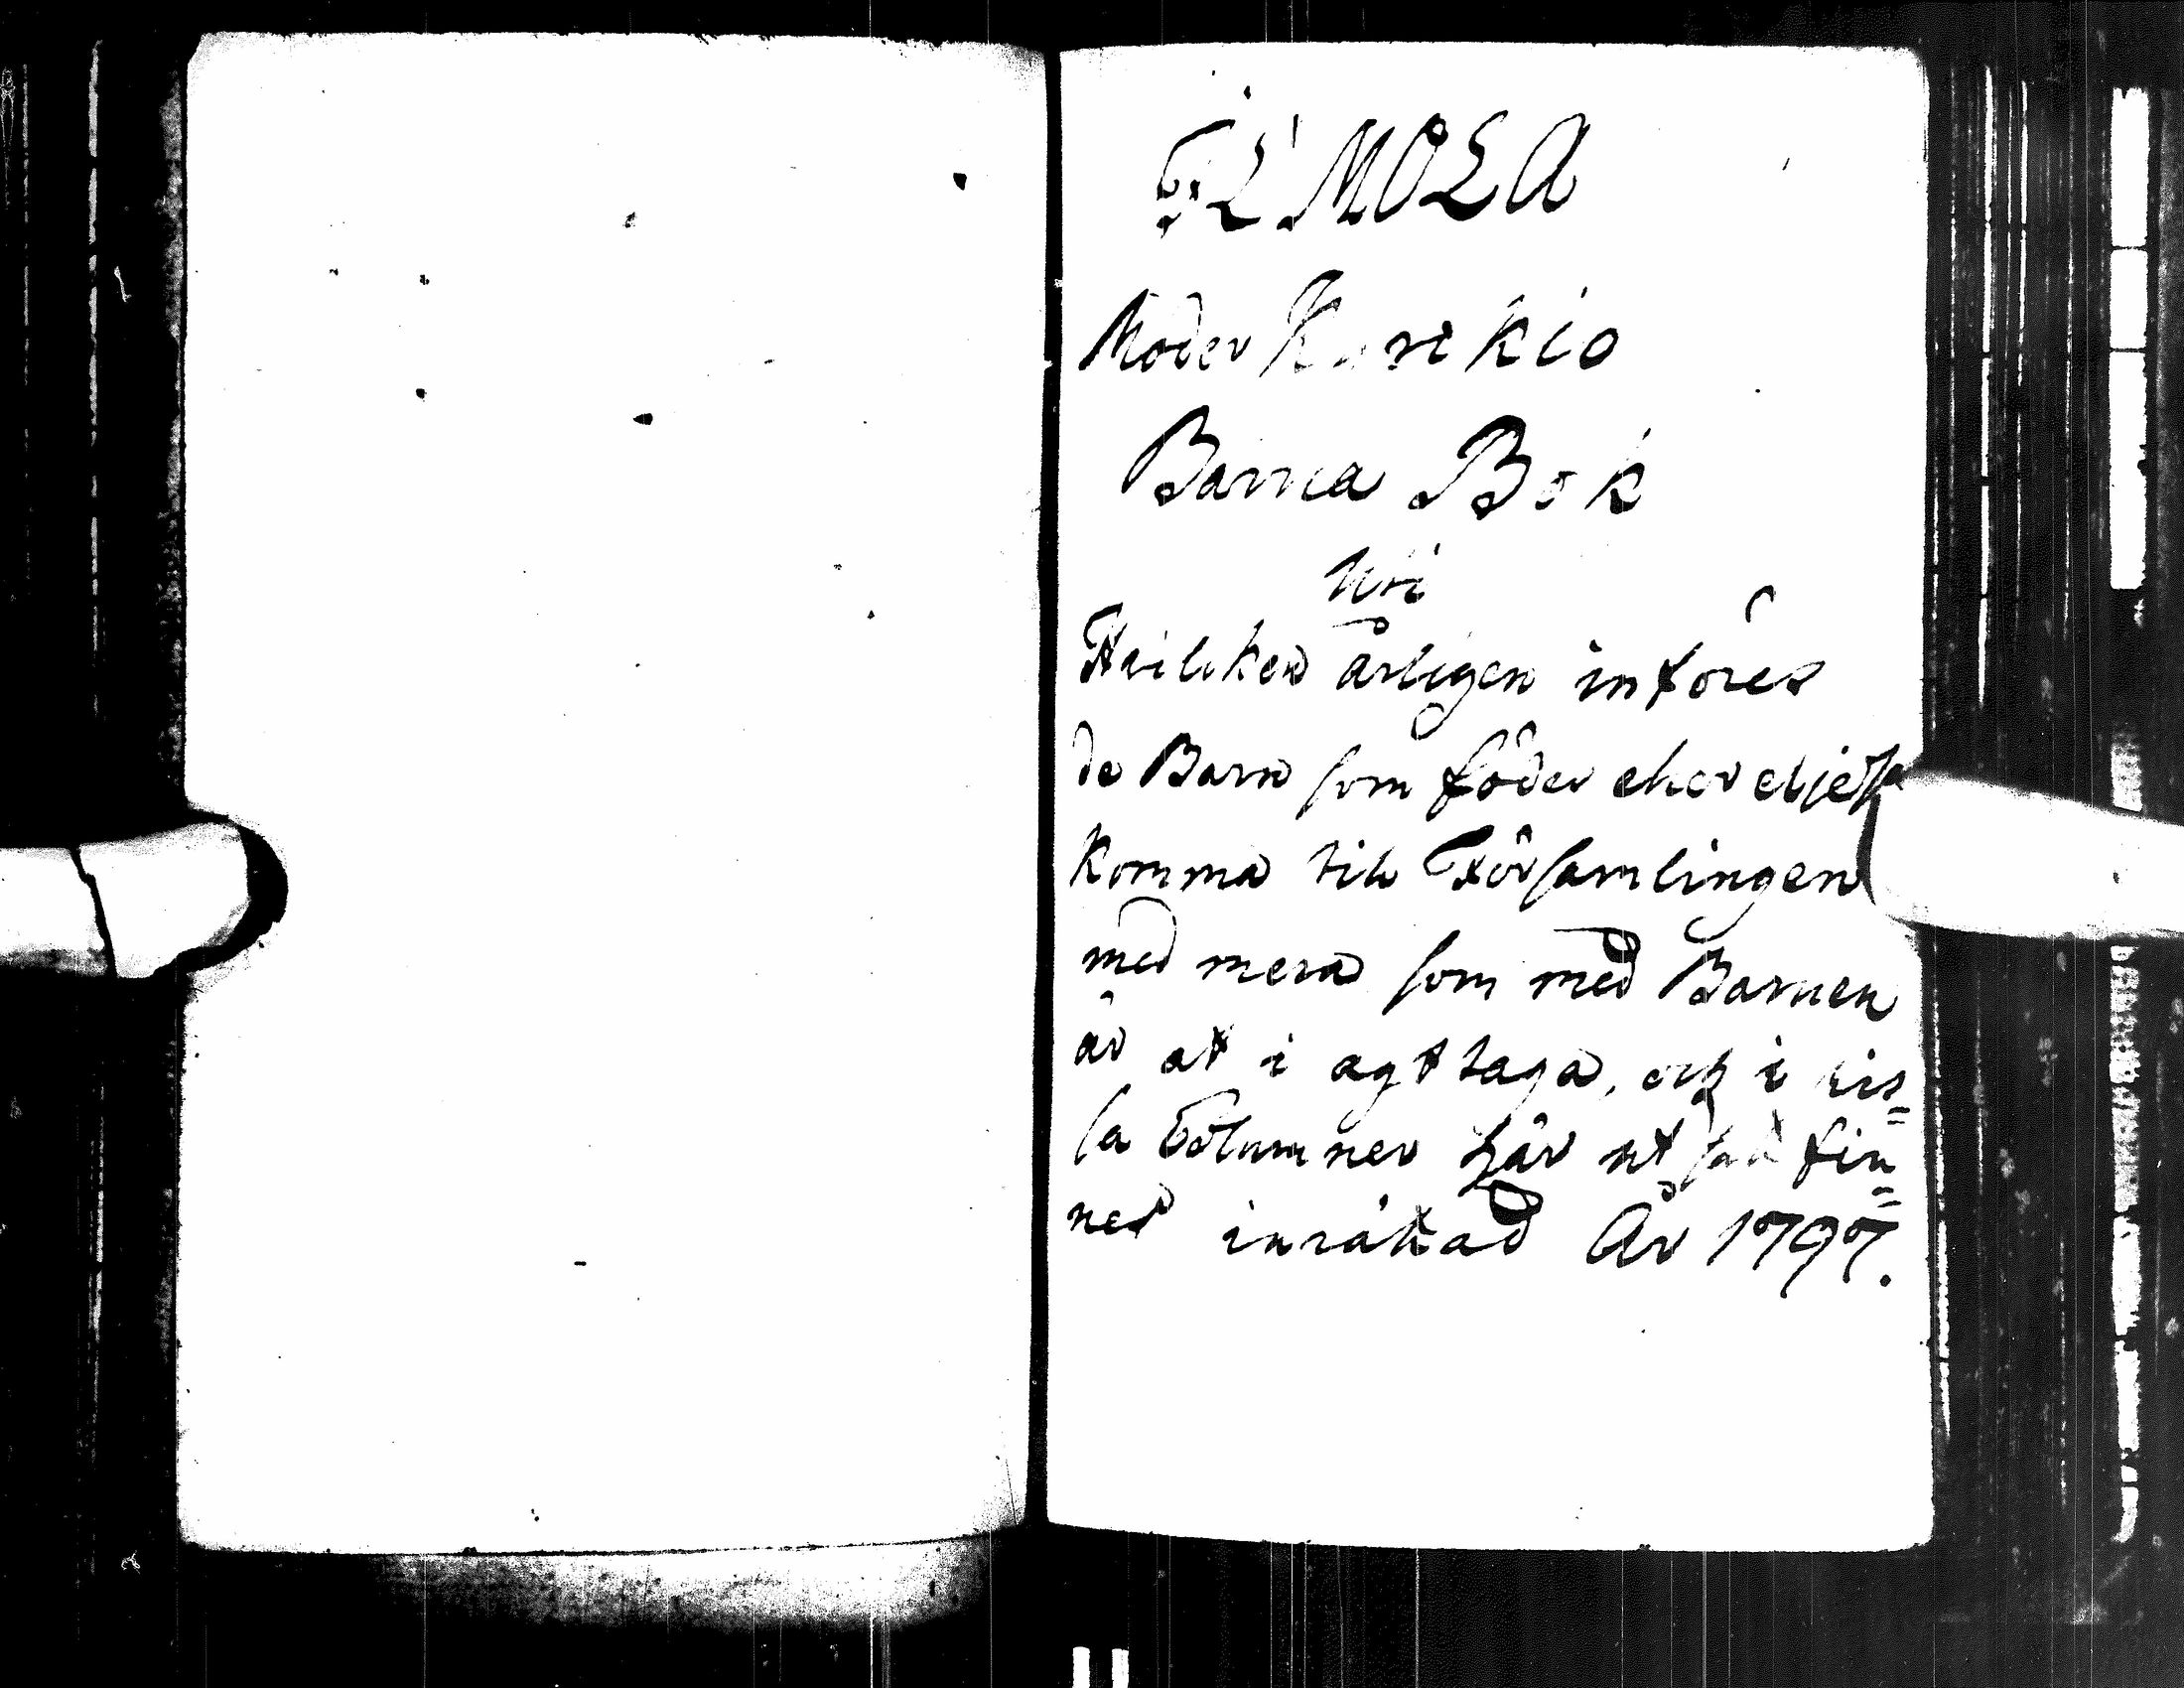 ILMOLA
Moder Kyrkio
Barna Bok
uti
Hvilken årligen införes
de Barn som föder eller eljest
komma till Församlingen
med mera som med Barnen
är at i agt taga, och i vis=
sa Columner här ut fin=
nes inrättad År 1797.